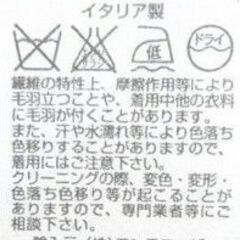 イタリア製
エンソサラシ
低
ドライ
繊維の特性上、摩擦作用等により
毛羽立つことや、着用中他の衣料
に毛羽が付くことがあります。
また、汗や水濡れ等により色落ち
色移りすることがありますので、
着用にはご注意下さい。
クリーニングの際、変色・変形・
色落ち色移り等が起こることが
ありますので、専門業者等にご
相談下さい。